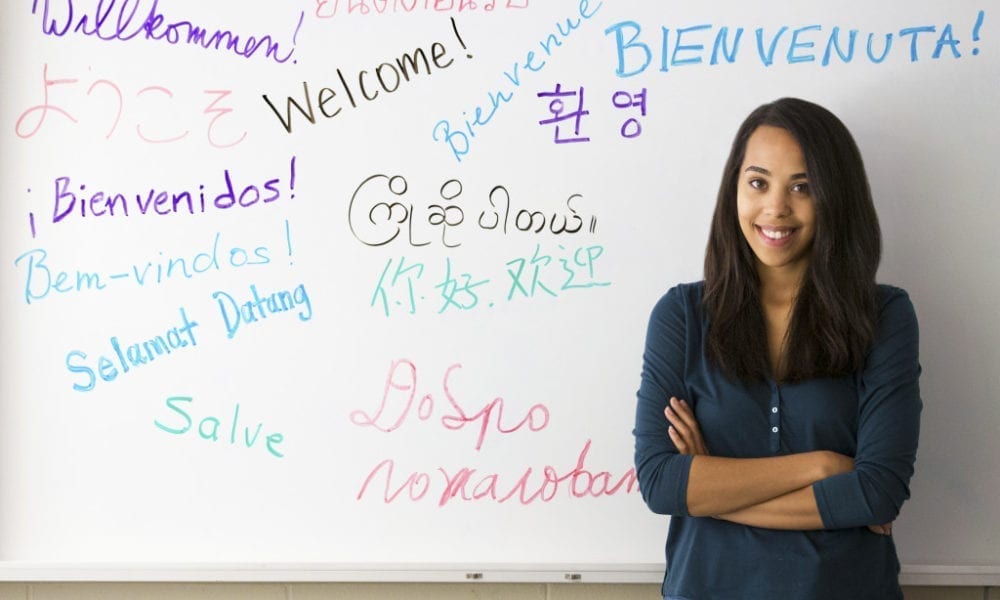 Willkommen!
Welcome!
Bienvenue
BIENVENUTA!
ようこそ
환영
¡Bienvenidos!
ကြိုဆိုပါတယ်။
Bem-vindos!
你好.欢迎
Selamat Datang
Salve
Добро
пожаловат